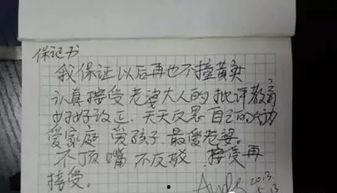 保证书
我保证以后再也不撞黄灾
认真接受老婆大人的批评教育
好好改正,天天反思自己的
爱家庭 爱孩子 最爱老婆。
不顶嘴 不反驳 接受再
接受。
2013
5.13